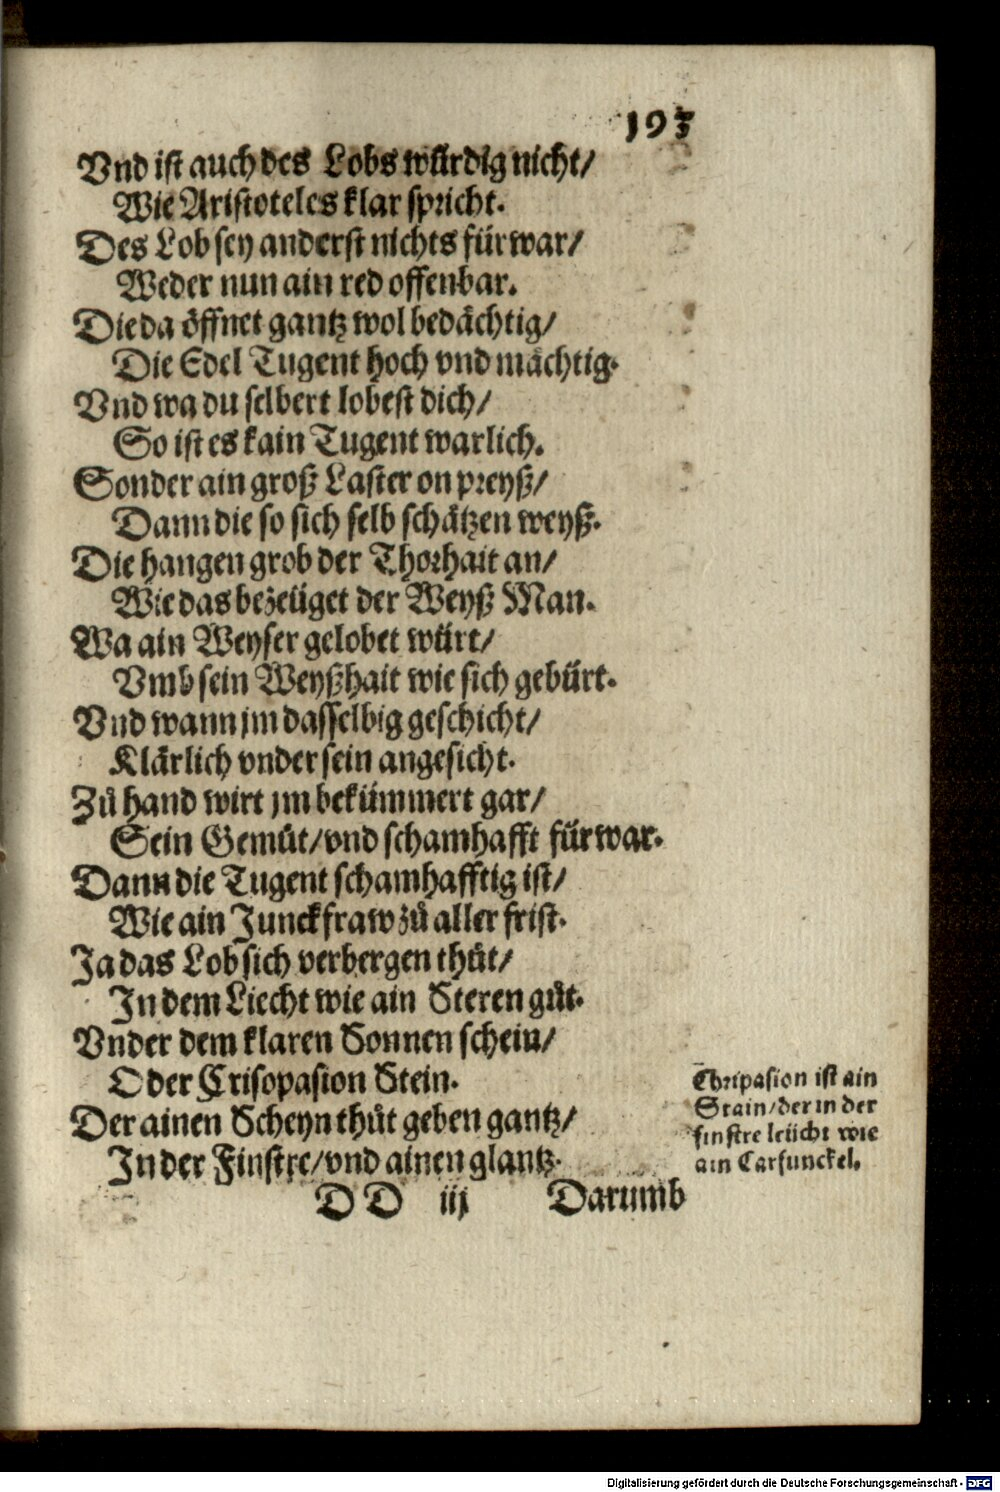 193
Vnd ist auch des Lobs würdig nicht/
Wie Aristoteles klar spricht.
Des Lob sey anderst nichts für war/
Weder nun ain red offenbar.
Die da öffnet gantz wol bedächtig/
Die Edel Tugent hoch vnd mächtig.
Vnd wa du selbert lobest dich/
So ist es kain Tugent warlich.
Sonder ain groß Laster on preyß/
Dann die so sich selb schätzen weyß.
Die hangen grob der Thorhait an/
Wie das bezeüget der Weyß Man.
Wa ain Weyser gelobet würt/
Vmb sein Weyßhait wie sich gebürt.
Vnd wann jm dasselbig geschicht/
Klärlich vnder sein angesicht.
Zů hand wirt jm bekümmert gar/
Sein Gemüt/vnd schamhafft für war.
Dann die Tugent schamhafftig ist/
Wie ain Junckfraw zů aller frist.
Ja das Lob sich verbergen thůt/
In dem Liecht wie ain Steren gůt.
Vnder dem klaren Sonnen schein/
Oder Crisopasion Stein.
Der ainen Scheyn thůt geben gantz/
In der Finstre/vnd ainen glantz.
Chripasion ist ain
Stain/der in der
finstre leücht wie
ain Carfunckel.
DD iij Darumb
Digitalisierung gefördert durch die Deutsche Forschungsgemeinschaft - DFG